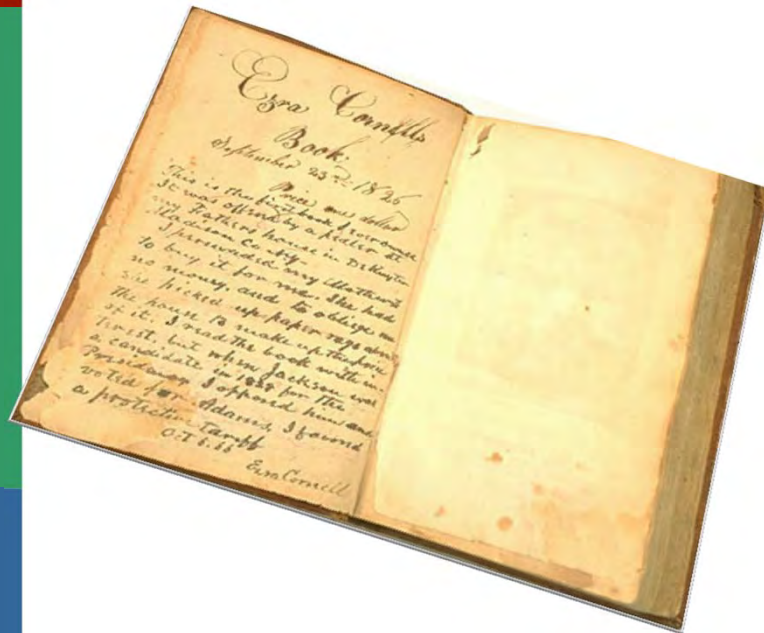 Ezra Cornell's
Book.
September 23rd 1826
Price one dollar
This is the first book I ever owned
It was offered by a pedler at
my Fathers house in DeRuyter
Madison Co NY.
I persuaded my Mother
to buy it for me. She had
no money, and to oblige me
she picked up paper rags about
the house to make up the price
of it. I read the book with in-
terest, but when Jackson was
a candidate in 1828 for the
Presidency I opposed him and
voted for Adams, I found
a protective tariff
Oct
Ezra Cornell